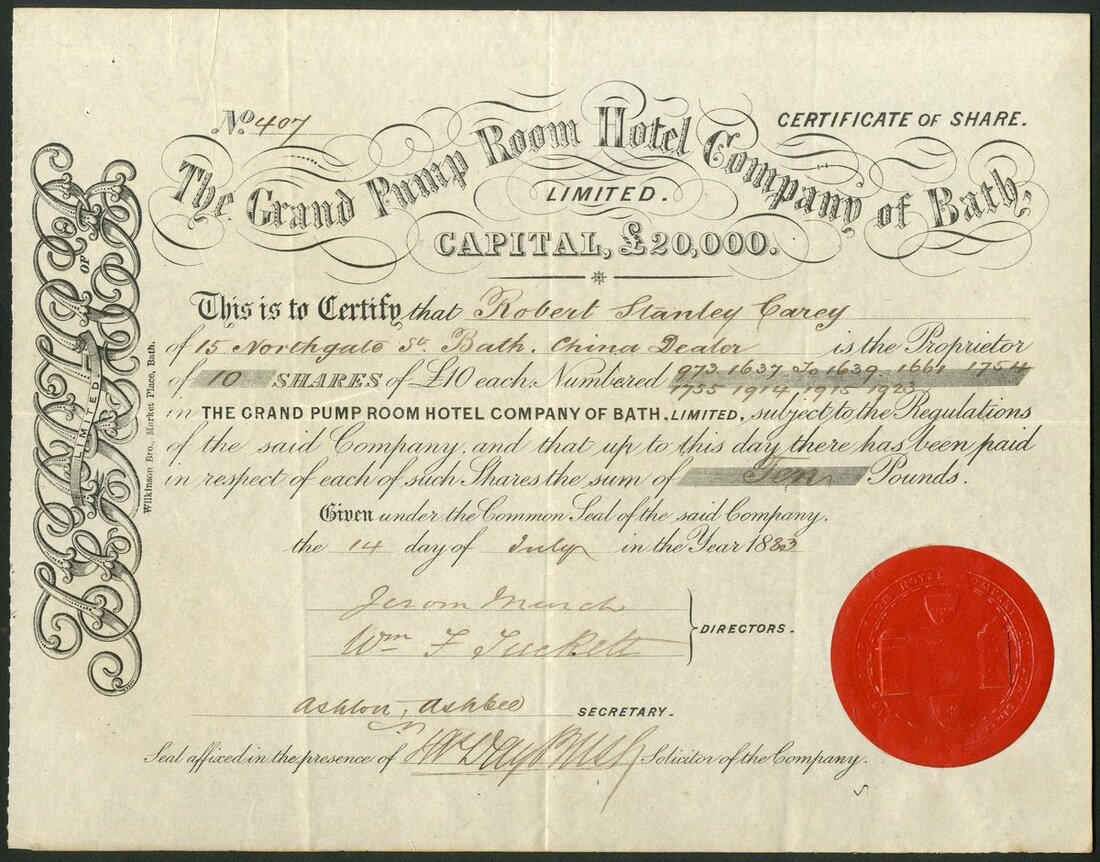 No. 407
CERTIFICATE OF SHARE.
The Grand Pump Room Hotel Company of Bath,
LIMITED.
CAPITAL, £20,000.
This is to Certify that Robert Stanley Carey
of 15 Northgate St. Bath. China Dealer is the Proprietor
of 10 SHARES of £10 each Numbered 973. 1637 to 1639. 1661 1754
1755 1914 1915 1923
in THE GRAND PUMP ROOM HOTEL COMPANY OF BATH, LIMITED, subject to the Regulations
of the said Company, and that up to this day there has been paid
in respect of each of such Shares the sum of Ten Pounds.
Given under the Common Seal of the said Company.
the 14 day of July in the Year 1883
Jerom Murch
Wm F Tuckett
DIRECTORS.
Ashton, Ashbee
SECRETARY.
Seal affixed in the presence of Solicitor of the Company.
LIMITED.
OF
Wilkinson Bro., Market Place, Bath.